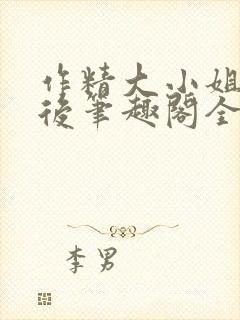 作精大小姐
後笔趣阁全
李男